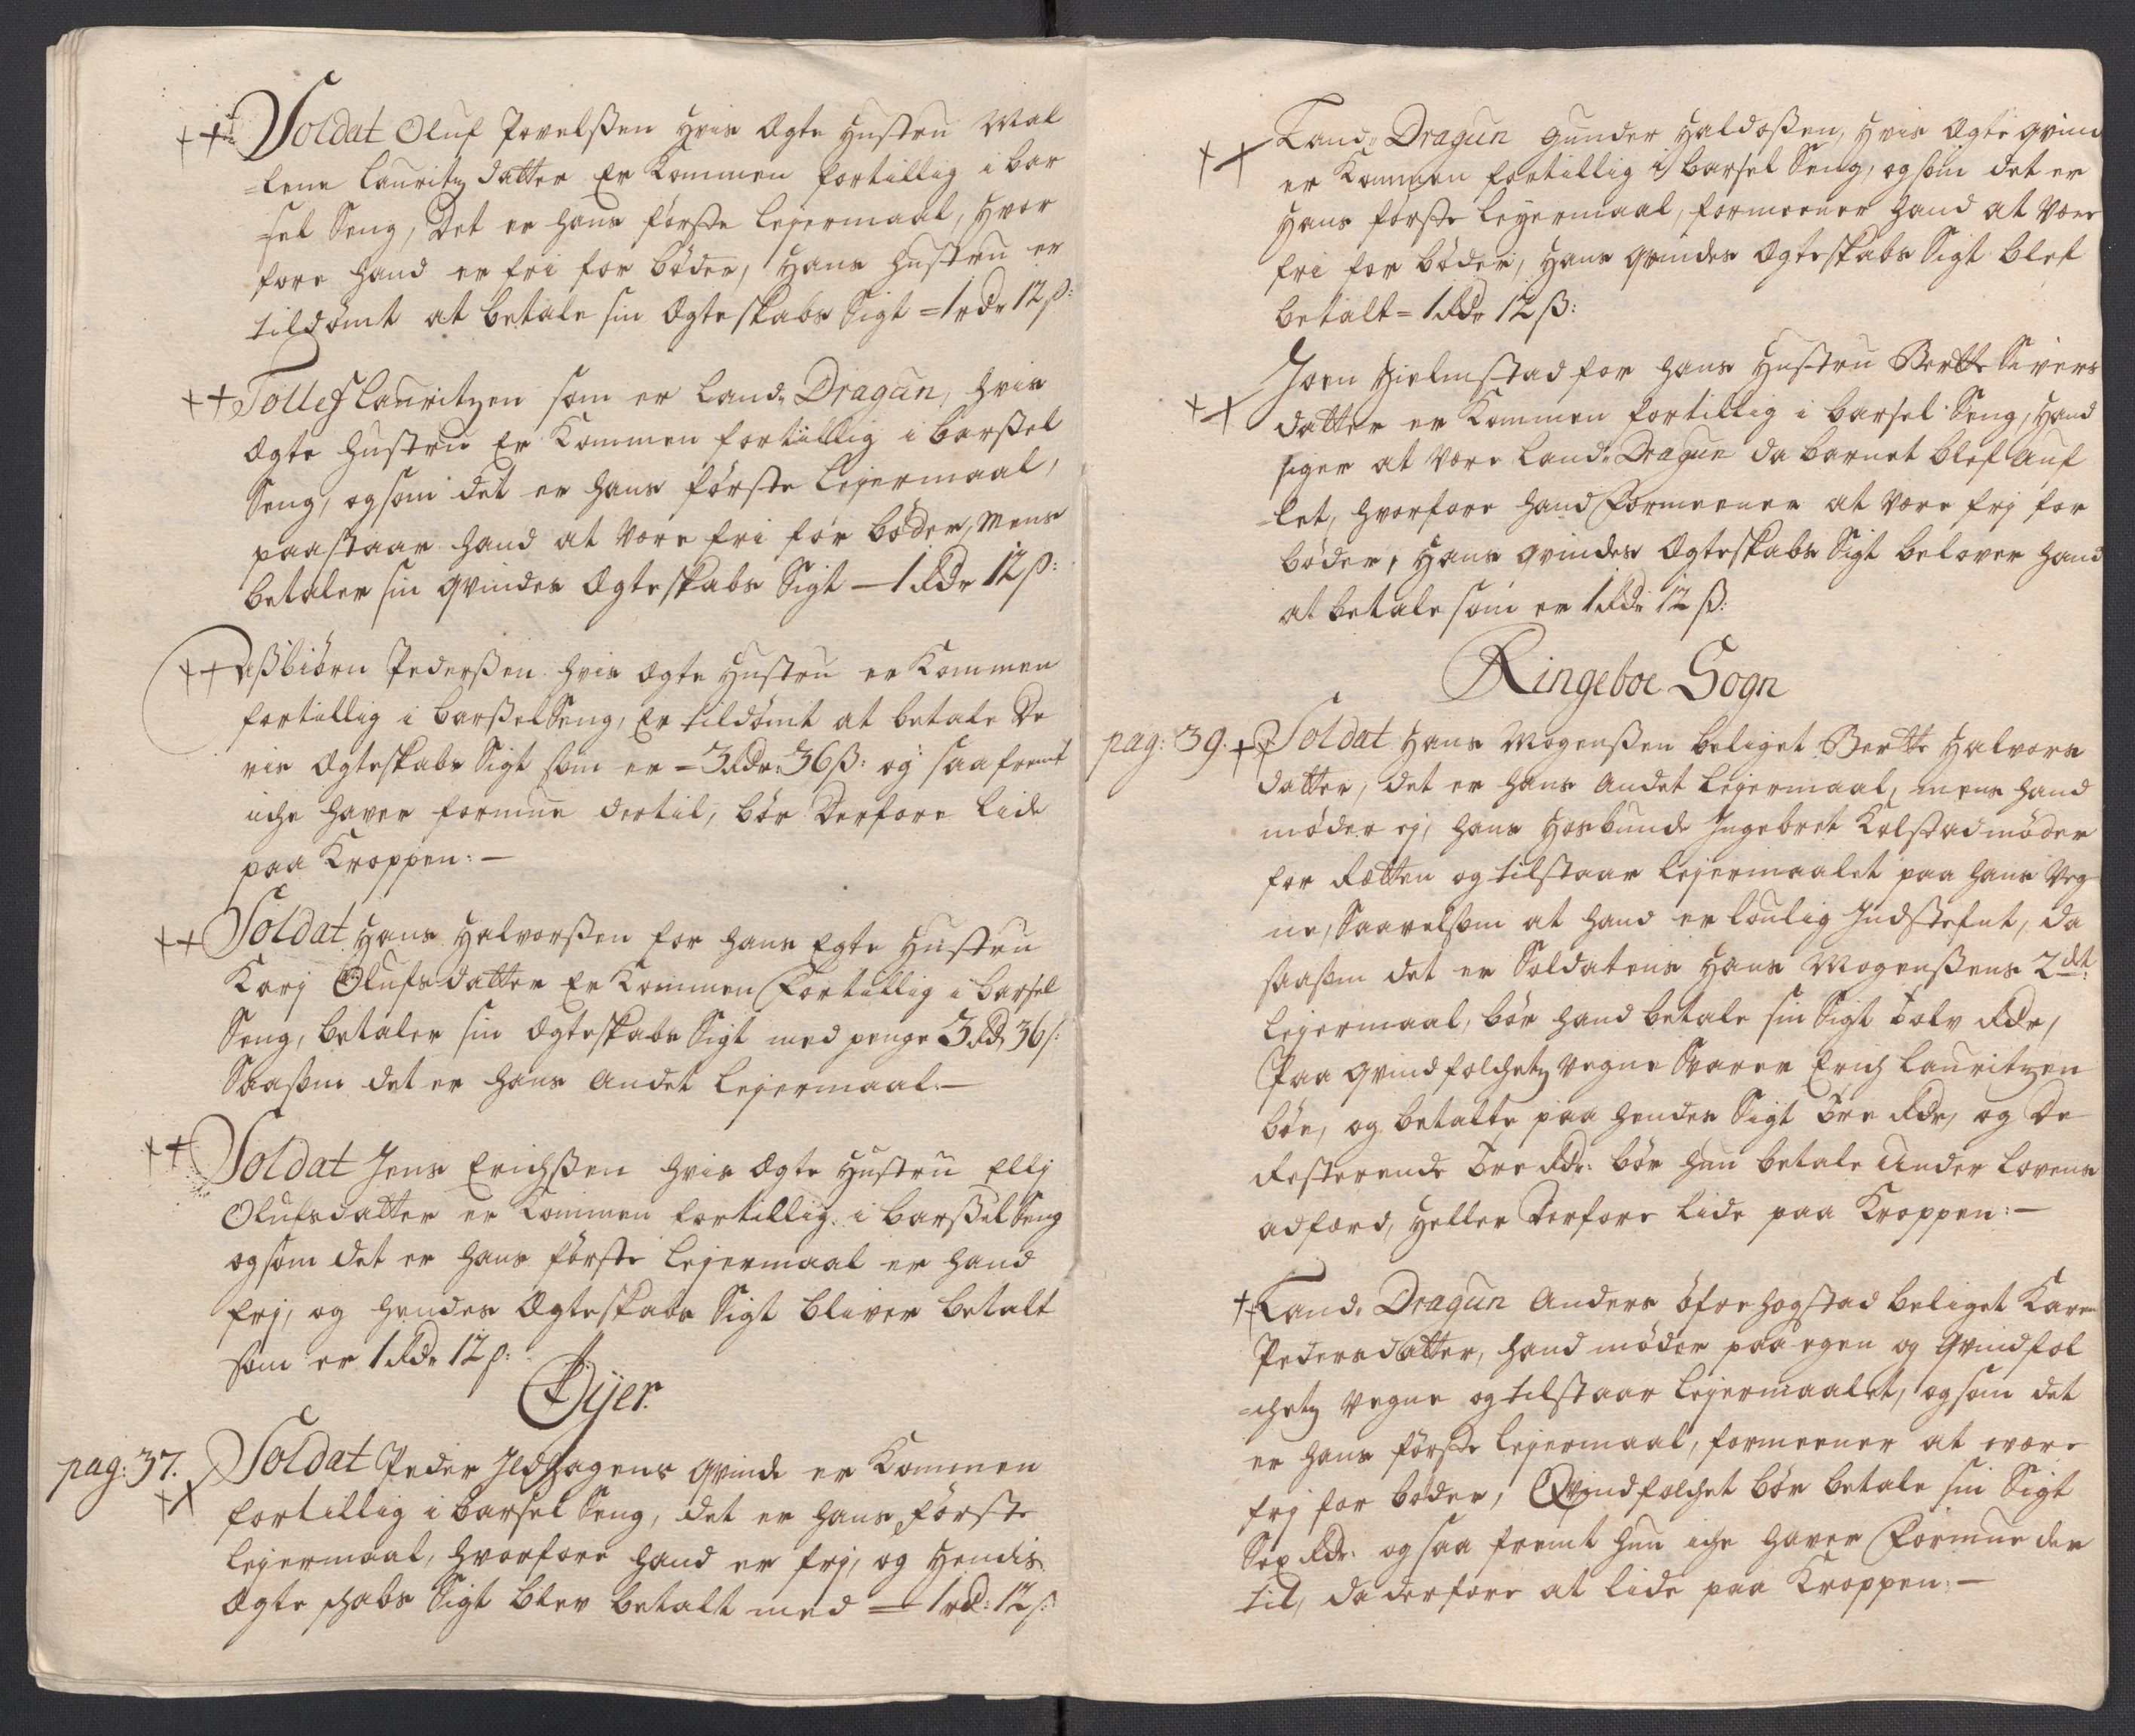 Soldat Oluf Povelßen hvis Ægte hustru Mal
=lene Lauritz datter Er Kommen fortillig i bar
=sel Seng, Det er hans förste lejermaal, hvor
fore hand er fri for böder, hans hustru er
tildömt at betale sin Ægteskabs Sigt =1rdr 12 ß:
Tollef Lauritzen som er Land. Dragun, hvis
Ægte hustru Er Kommen fortillig i barßel
Seng, og som det er hans förste Lejermaal,
paastaar hand at være fri for böder, mens
betaler sin qvindes Ægteskabs Sigt — 1 Rdr 12 ß:
Aßbiörn Pederßen hvis Ægte hustru er Kommen
fortillig i barßelSeng, Er tildömt at betale De
ris Ægteskabs Sigt som er = 3 Rdr: 36 ß: og saafremt
iche haver formue dertil, bör Derfore lide
paa Kroppen: —
Soldat Hans Halvorßen for hans Egte Hustru
Karj Olufsdatter Er Kommen Fortillig i barsel
Seng, betaler sin Ægteskabs Sigt med penge 3 Rd 36 ß:
Saasom det er hans Andet Lejermaal. —
Soldat Jens Erichßen hvis Ægte Hustru Ellj
Olufsdatter er Kommen fortillig i barßelSeng
og som det er hans förste Lejermaal er hand
frj, og hendes Ægteskabs Sigt bliver betalt
som er 1 Rdr 12 ß:
Öijer.
pag: 37. Soldat Peder Ildhagens qvinde er Kommen
fortillig i barsel Seng, det er hans förste
Lejermaal, hvorfore hand er frj, og Hendis
Ægte schabs Sigt blev betalt med = 1 rd: 12 ß:
Land. Dragun Gunder Haldoßen, hvis Ægte qvind
er Kommen fortillig i barsel Seng, og som det er
Hans förste Leyermaal, formeener hand at være
fri for böder, Hans qvindes Ægteskabs Sigt blef
betalt = 1 Rdr 12 ß:
Joen Hielmstad for hans Hustru Berthe Sivers
datter er Kommen fortillig i barsel Seng, Hand
siger at være Land. Dragun da barnet blef Auf
=let, hvorfore hand Formeener at være frj for
böder, Hans qvindes Ægteskabs Sigt belover hand
at betale som er 1 Rdr 12 ß:
Ringeboe Sogn
pag: 39. Soldat Hans Mogenßen beliget Berthe Halvors
datter, det er hans Andet Lejermaal, mens hand
möder ej, hans Hosbunde Ingebret Kolstad möder
for Rætten og tilstaar Lejermaalet paa hans Veg
ne, Saavelsom at hand er loulig Indstefnt, da
saasom det er Soldatens Hans Mogenßens 2dt:
Lejermaal, bör hand betale sin Sigt Tolv Rdr,
Paa qvindfolchetz vegne Svarer Erich Lauritzen
böe, og betalte paa hendes Sigt Tre Rdr, og De
Resterende Tre Rdr: bör hun betale Under Lovens
adfærd, Heller Derfore lide paa Kroppen: —
Land. Dragun Anders öfre hogstad beliget Karen
Pedersdatter, hand möder paa egen og qvindfol
=chetz vegne og tilstaar Lejermaalet, og som det
er hans förste Lejermaal, formeener at være
frj for böder, Qvindfolchet bör betale sin Sigt
Sex Rdr: og saa fremt hun iche haver Formue der
til, da derfore at lide paa Kroppen: —